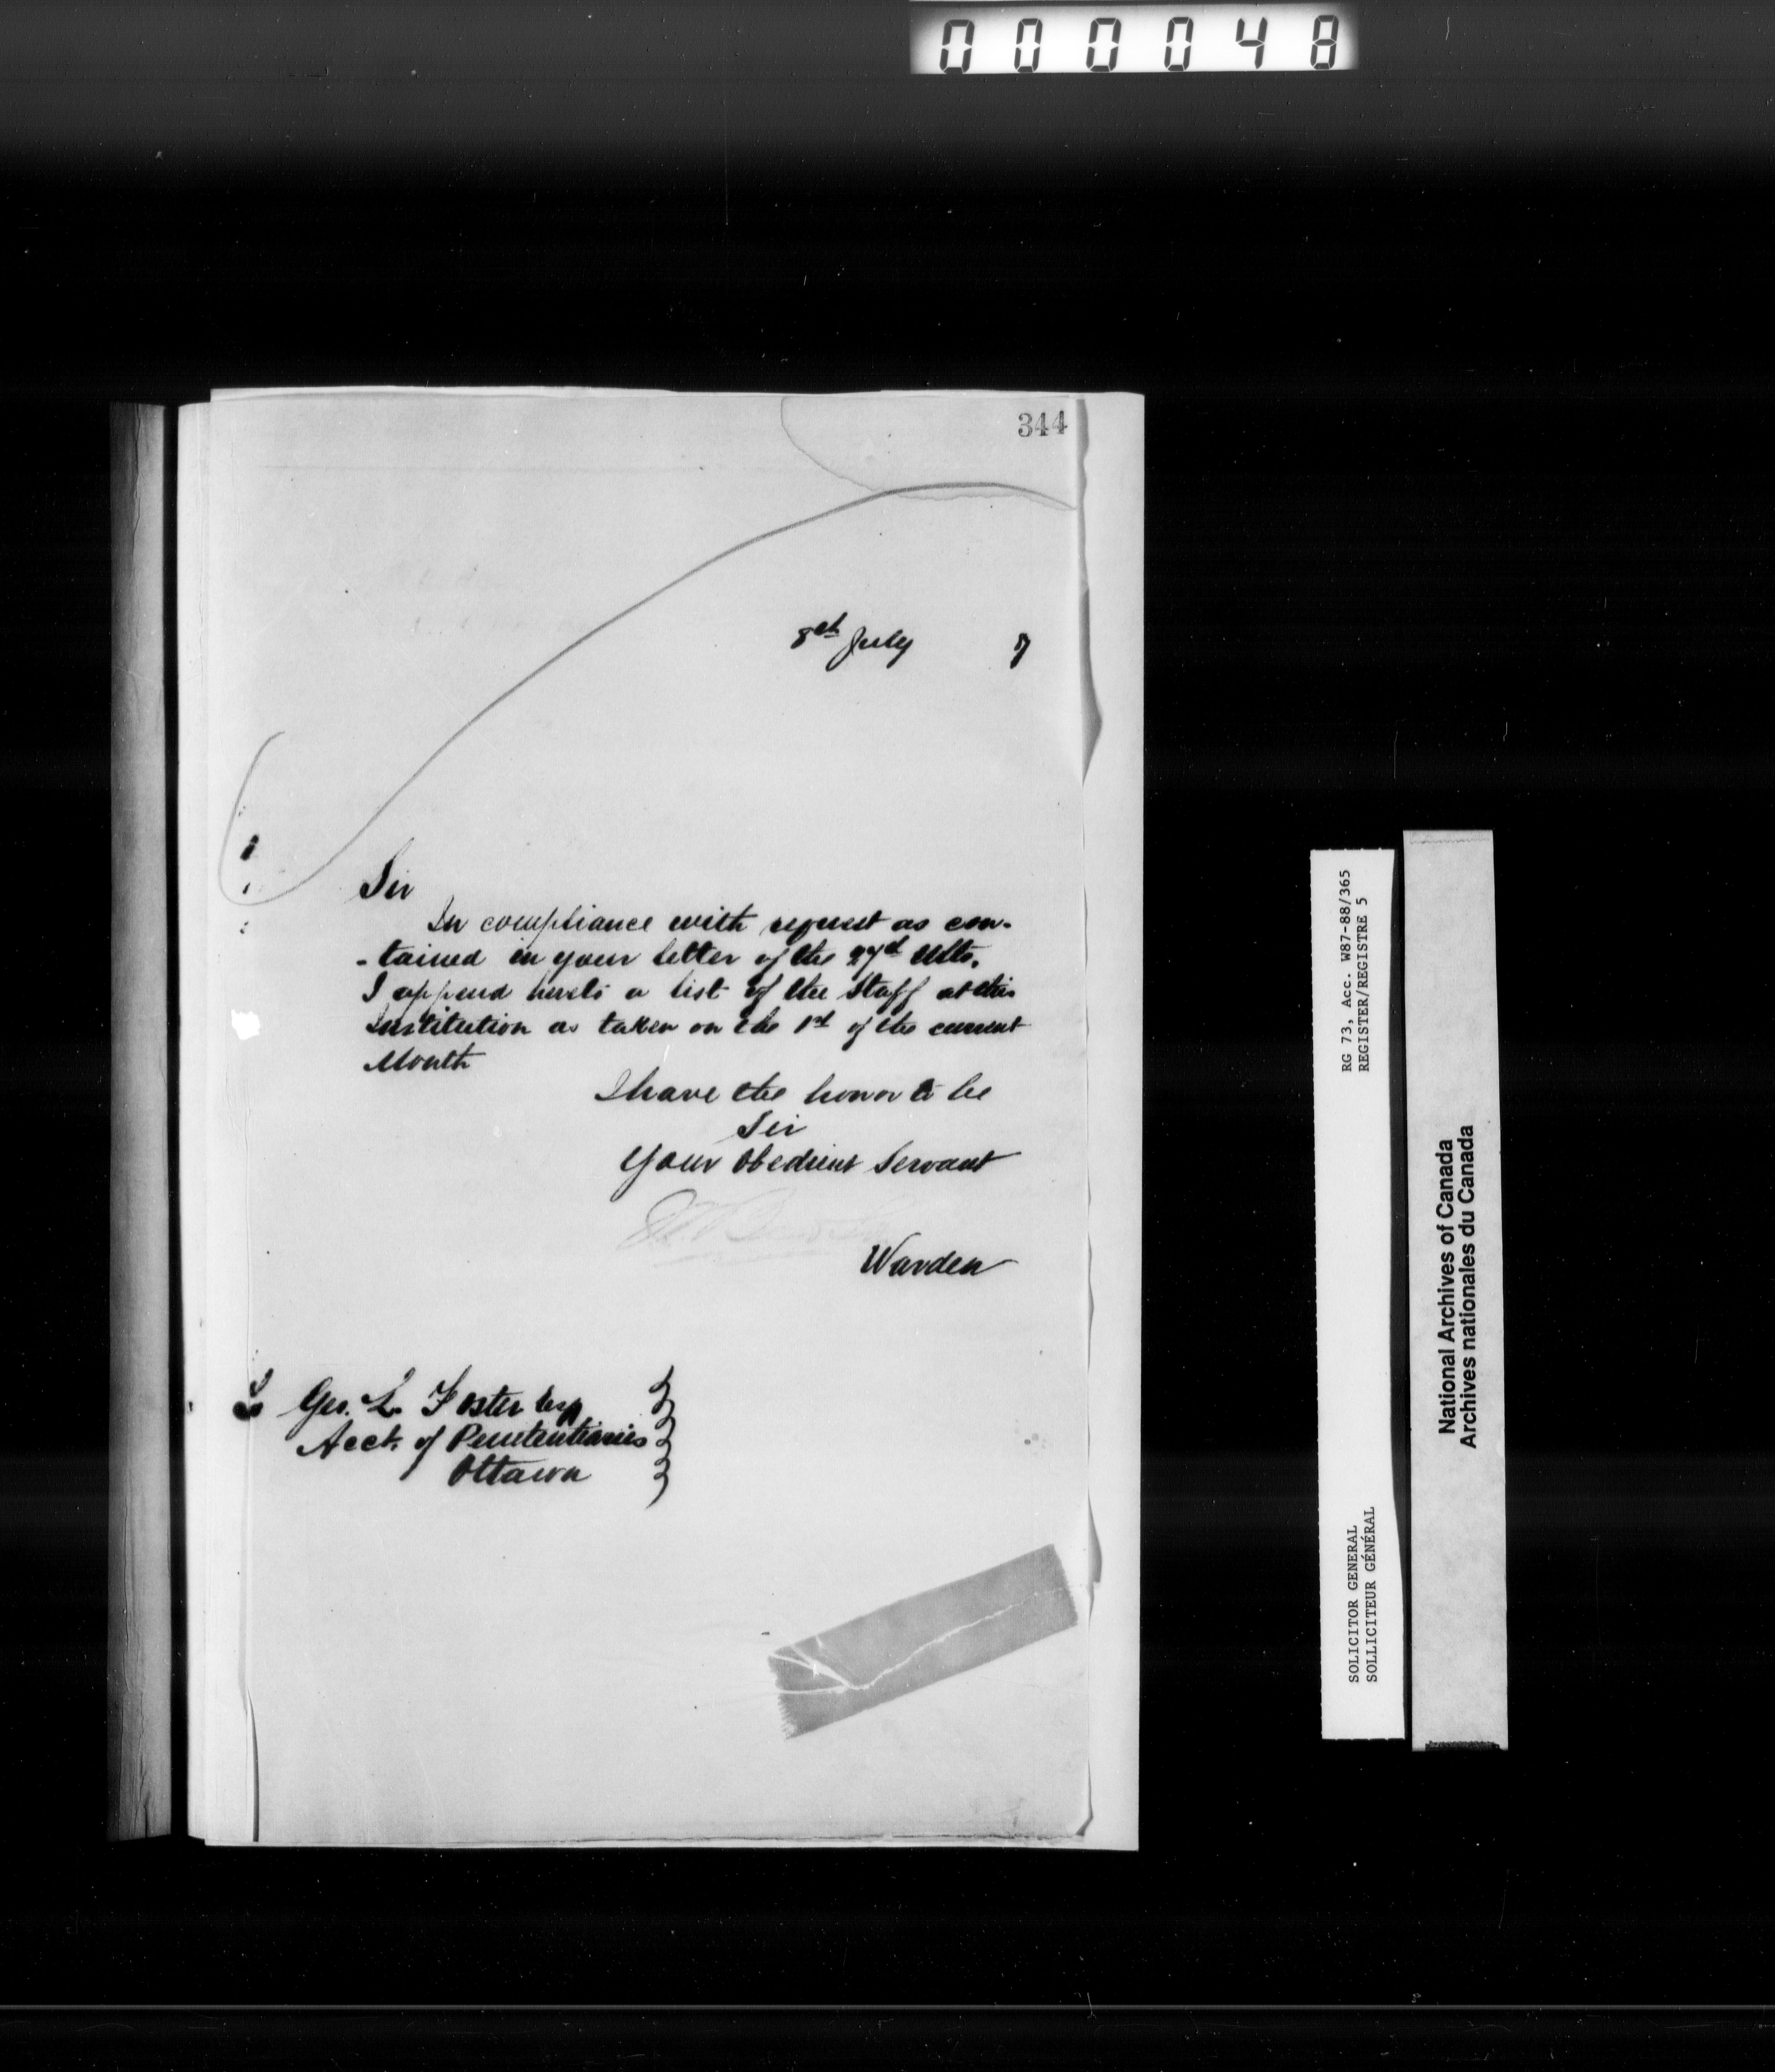 000048
344
8th July 7
Sir
In compliance with request as con-
-tained in your letter of the 27th Ulto.
I append hereto a list of the Staff at this
Institution as taken on the 1st of the current
Month
I have the honor to be
Sir
Your Obedient Servant
Warden
Geo. L. Foster Esq
Acct. of Penitentiaries
Ottawa
RG 73, Acc. W87-88/365
REGISTER/REGISTRE 5
SOLICITOR GENERAL
SOLLICITEUR GÉNÉRAL
National Archives of Canada
Archives nationales du Canada